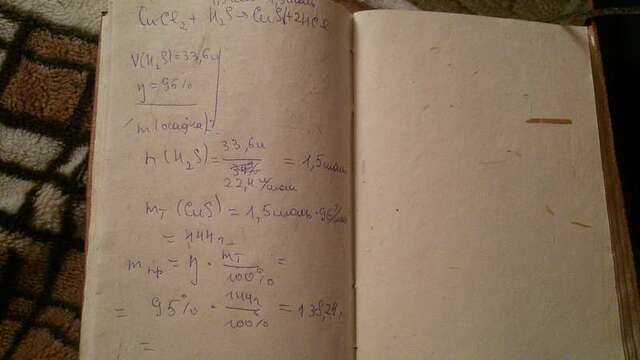 CuCl2 + H2S → CuS + 2HCl
V(H2S) = 33,6л
η = 95%
m(осадка)?
n(H2S) = 33,6л / 22,4л/моль = 1,5моль
mт(CuS) = 1,5моль · 96г/моль
= 144г
mпр = η · mт / 100% =
= 95% · 144г / 100% = 138,2г.
=